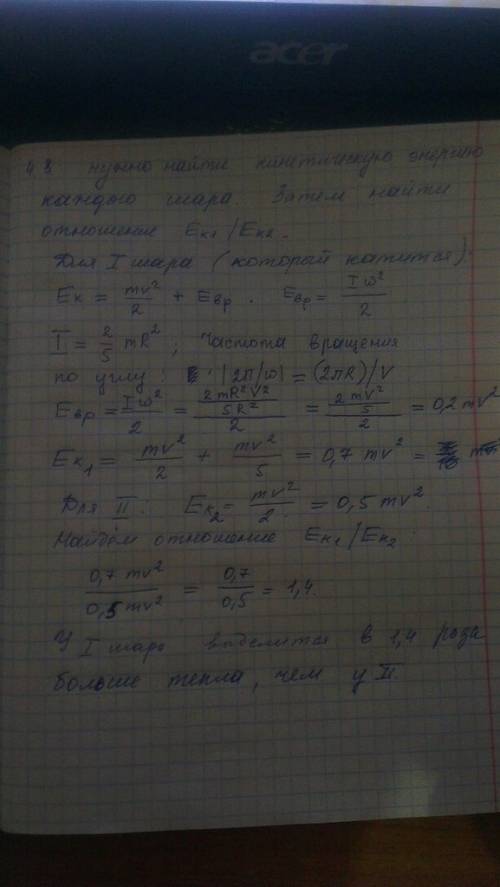 acer
4 8 нужно найти кинетическую энергию
каждого шара. Затем найти
отношение Eк1/Eк2.
Для I шара (который катится):
Eк = mv²/2 + Eвр. Eвр = Iω²/2
I = 2/5 mR²; Частота вращения
по углу: |2π/ω| = (2πR)/V
Eвр = Iω²/2 = (2mR²V²/5R²)/2 = (2mV²/5)/2 = 0,2 mv²
Eк₁ = mv²/2 + mv²/5 = 0,7 mv² =
Для II: Eк₂ = mv²/2 = 0,5 mv².
Найдём отношение Eк₁/Eк₂
0,7 mv²/0,5 mv² = 0,7/0,5 = 1,4.
У I шара выделится в 1,4 раза
больше тепла, чем у II